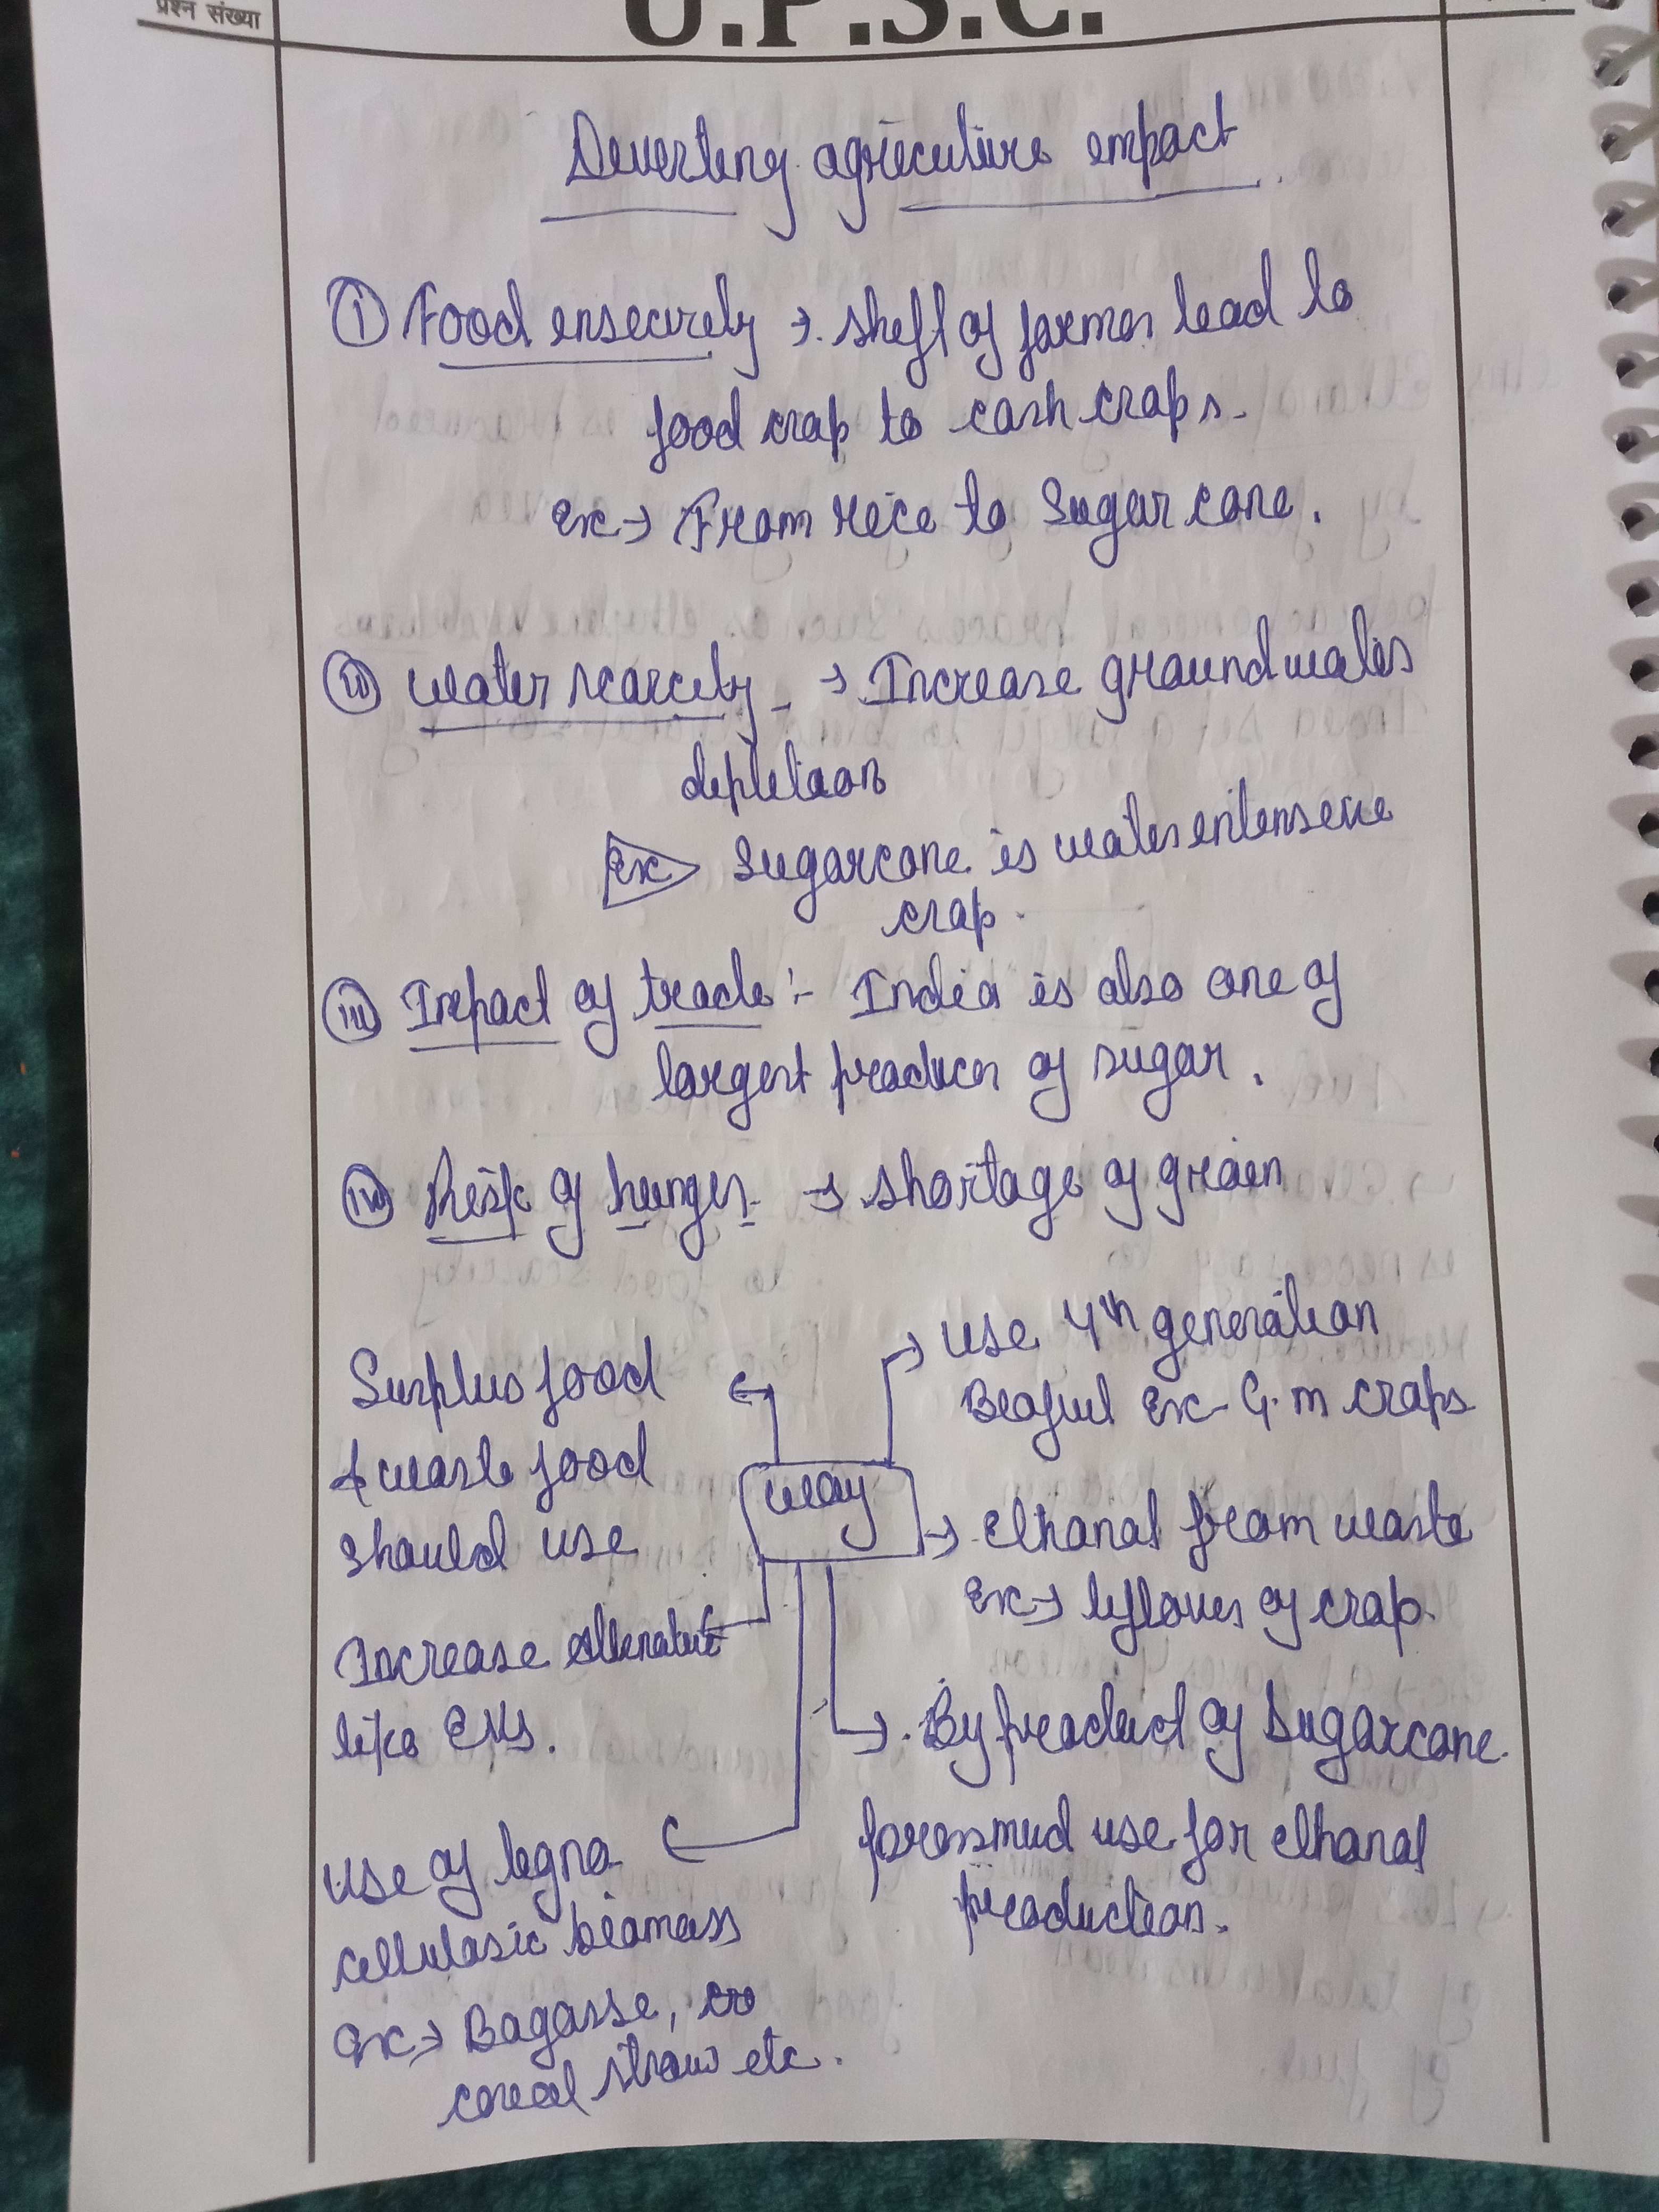 प्रश्न संख्या
U.P.S.C.
Diverting agriculture impact
(i) Food insecurity → shift of farmer lead to
food crop to cash crops.
Ex → From rice to Sugarcane.
(ii) Water scarcity → Increase groundwater
depletion
Ex Sugarcane is water intensive
crop.
(iii) Impact of trade :- India is also one of
largest producer of sugar.
(iv) Risk of hunger → shortage of grain
Surplus food
& waste food
should use
Increase alternative
like EVs.
Use of ligno
cellulosic biomass
Ex → Bagasse,
cereal straw etc.
way
→ Use 4th generation
Biofuel Ex - G.m crops
→ Ethanol from waste
Ex → leftover of crop.
→ By product of Sugarcane
pressmud use for ethanol
production.